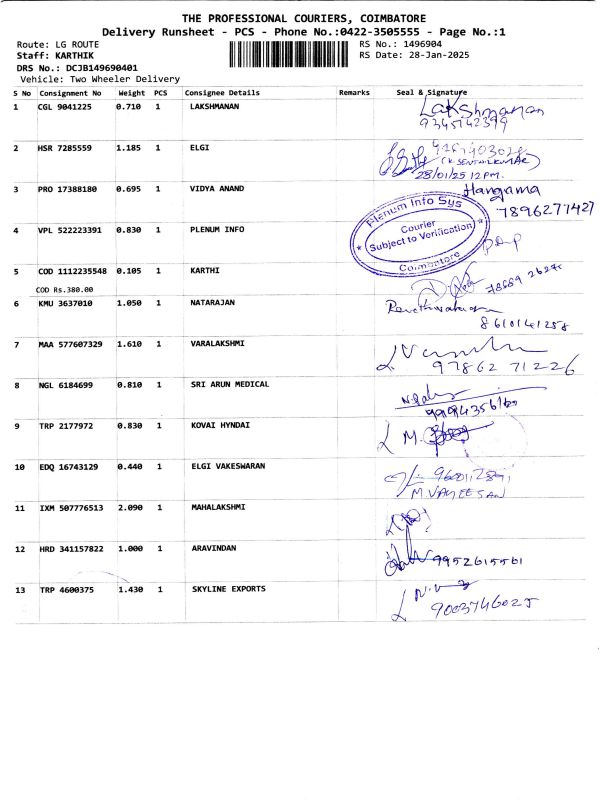 THE PROFESSIONAL COURIERS, COIMBATORE
Delivery Runsheet - PCS - Phone No.:0422-3505555 - Page No.:1
Route: LG ROUTE RS No.: 1496904
Staff: KARTHIK RS Date: 28-Jan-2025
DRS No.: DCJB149690401
Vehicle: Two Wheeler Delivery
S No Consignment No Weight PCS Consignee Details Remarks Seal & Signature
1 CGL 9041225 0.710 1 LAKSHMANAN Lakshmanan
9345742399
2 HSR 7285559 1.185 1 ELGI
28/01/25 12 PM.
3 PRO 17388180 0.695 1 VIDYA ANAND Hangama
7896277427
4 VPL 522223391 0.830 1 PLENUM INFO Plenum Info Sys
Courier
Subject to Verification
Coimbatore
5 COD 1112235548 0.105 1 KARTHI
COD Rs.380.00
6 KMU 3637010 1.050 1 NATARAJAN
8610141258
7 MAA 577607329 1.610 1 VARALAKSHMI
97862 71226
8 NGL 6184699 0.810 1 SRI ARUN MEDICAL
9 TRP 2177972 0.830 1 KOVAI HYNDAI
10 EDQ 16743129 0.440 1 ELGI VAKESWARAN
M.VAGEESAN
11 IXM 507776513 2.090 1 MAHALAKSHMI
12 HRD 341157822 1.000 1 ARAVINDAN 9952615561
13 TRP 4600375 1.430 1 SKYLINE EXPORTS
9003746025